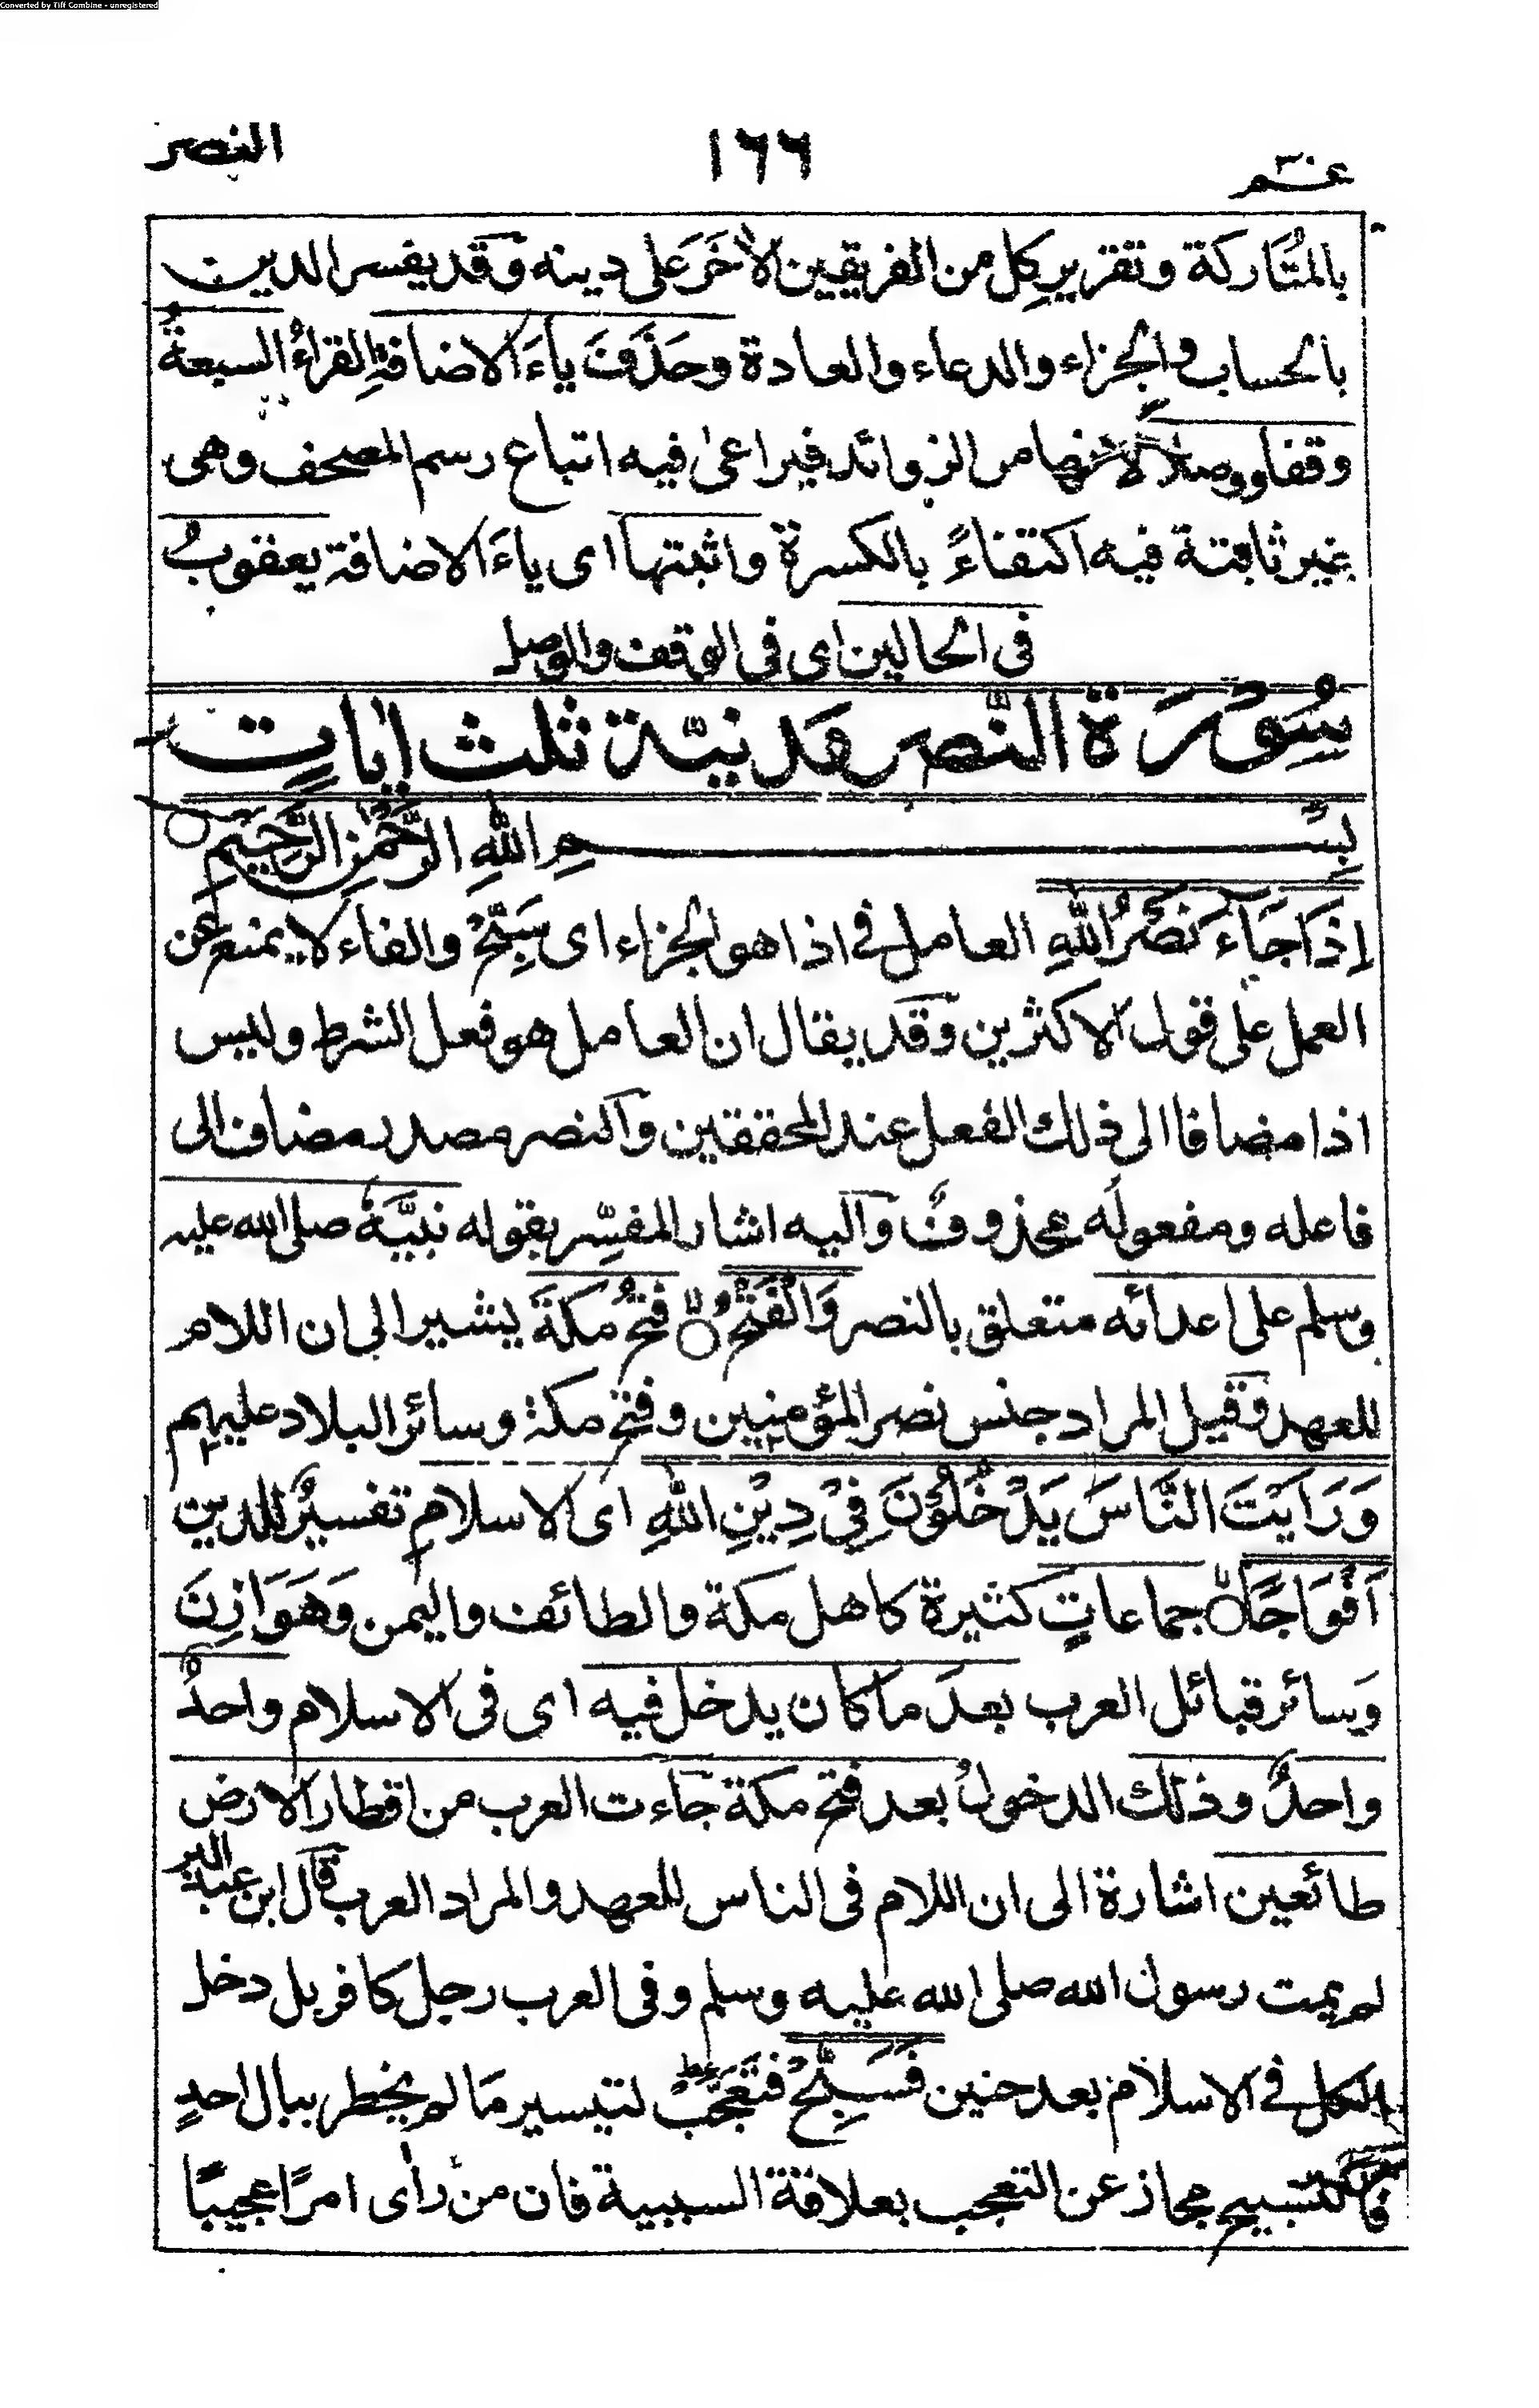 Converted by Tiff Combine - unregistered
عم ۳۰
١٦٦
النصر
بالمُتَاركة وتقريرِ كل من الفريقين الاٰخَرَ على دينه وقد يفسر الدين
بالحساب والجزاء والدعاء والعادة وحَذَفَ ياءَ الاضافةِ القراءُ السبعةُ
وقفا ووصلاً لانها من الزوائد فيراعىٰ فيه اتباع رسم المصحف وهى
غير ثابتة فيه اكتفاءً بالكسرة واثبتها اى ياءَ الاضافة يعقوبُ
فى الحالين اى فى الوقف والوصل
سُورَة النَّصر مدنيّة ثلث اٰيات
بِسْـــــمِ اللهِ الرَّحْمٰنِ الرَّحِيْمِ ○
اِذَا جَآءَ نَصْرُ اللهِ العامل فى اذا هو الجزاء اى سَبِّحْ والفاء لا يمنع عن
العمل على قول الاكثرين وقد يقال ان العامل هو فعل الشرط وليس
اذا مضافا الى ذلك الفعل عند المحققين والنصر مصدر مضاف الى
فاعله ومفعولَه محذوفٌ واليه اشار المفسِّر بقوله نبيَّهٗ صلى الله عليه
وسلم على اعدائه متعلق بالنصر وَالْفَتْحُ ○ فتحُ مكةَ يشير الى ان اللام
للعهد وقيل المراد جنس نصر المؤمنين وفتح مكة وسائر البلاد عليهم
وَرَاَيْتَ النَّاسَ يَدْخُلُوْنَ فِىْ دِيْنِ اللهِ اى الاسلامِ تفسيرٌ للدين
اَفْوَاجًا ○ جماعاتٍ كثيرة كاهل مكة والطائف واليمن وَهَوَازِنَ
وَسائر قبائل العرب بعدَ ما كان يدخل فيه اى فى الاسلام واحدٌ
واحدٌ وذلك الدخولُ بعد فتح مكة جاءت العرب من اقطار الارض
طائعين اشارة الى ان اللام فى الناس للعهد والمراد العرب قال ابن عبد البر
لم يمت رسول الله صلى الله عليه وسلم وفى العرب رجل كافر بل دخل
الكل فى الاسلام بعد حنين فَسَبِّحْ فتَعَجَّبْ لتيسير مَا لم يخطر ببال احدٍ
فالتسبيح مجاز عن التعجب بعلاقة السببية فان من رأى امرًا عجيبًا